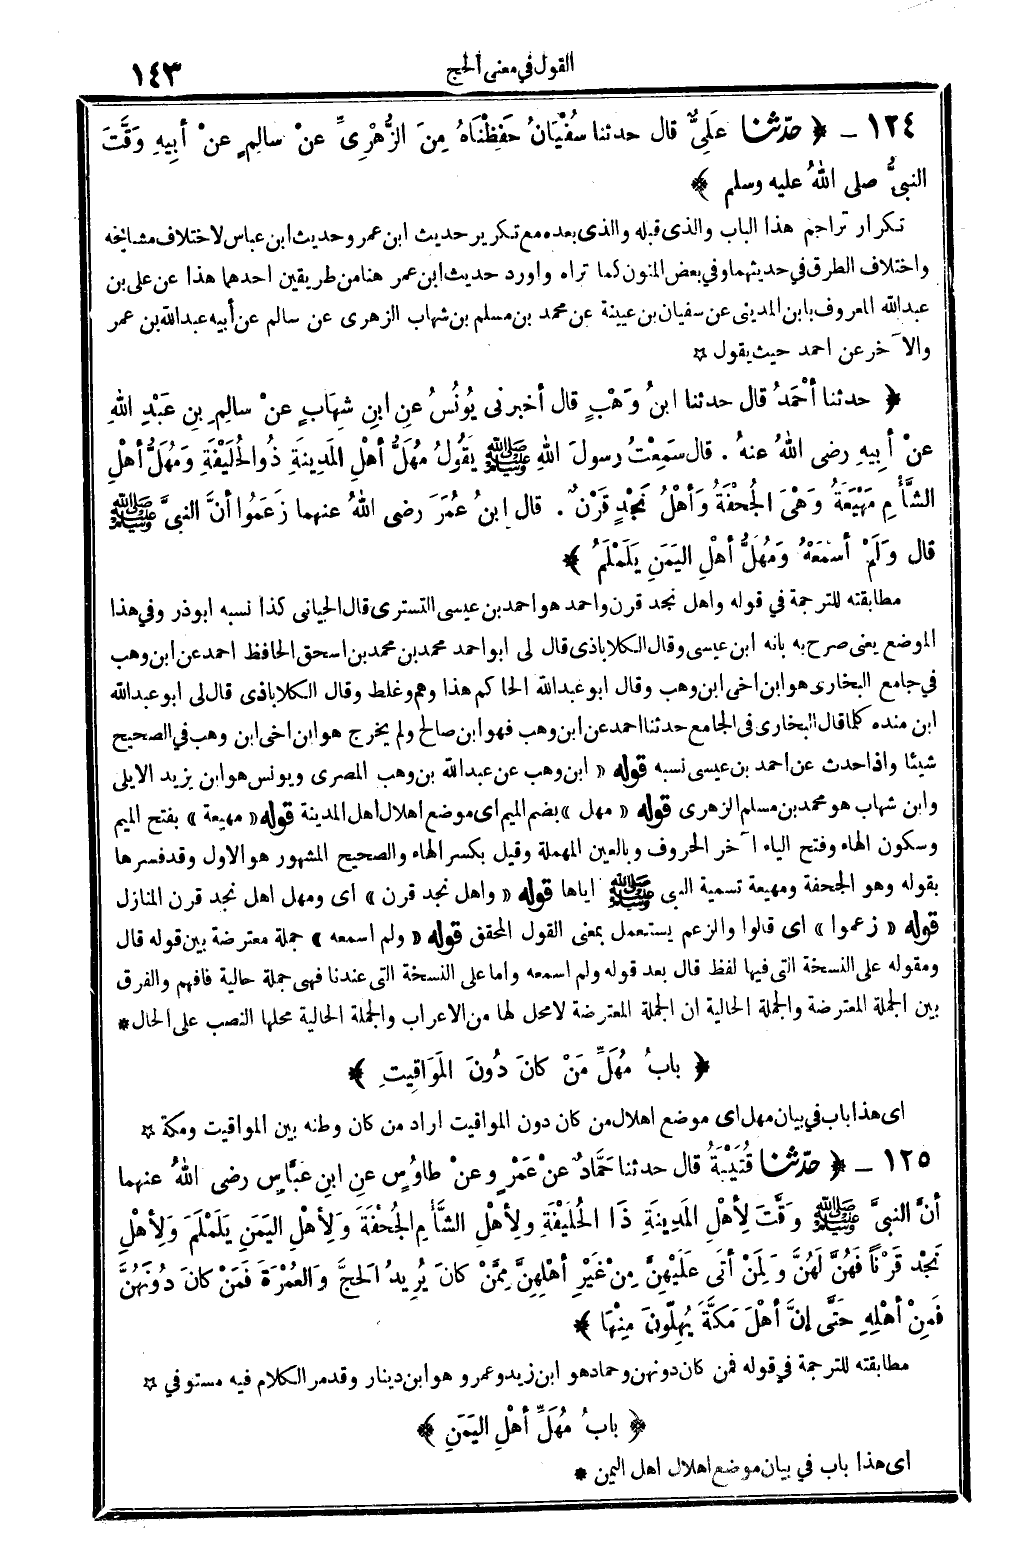 القول في معنى الحج
١٤٣
١٢٤ – ﴿ حدّثنا عَلَيٌّ قال حدثنا سُفْيَانُ حَفِظْنَاهُ مِنَ الزُّهْرِىِّ عنْ سالِمٍ عنْ أبِيهِ وَقَّتَ
النبيُّ صلى اللهُ عليه وسلم ﴾
تكرار تراجم هذا الباب والذى قبله والذى بعده مع تكرير حديث ابن عمر وحديث ابن عباس لاختلاف مشايخه
واختلاف الطرق في حديثهما وفي بعض المتون كما تراه واورد حديث ابن عمر هنا من طريقين احدهما هذا عن على بن
عبدالله المعروف بابن المدينى عن سفيان بن عيينة عن محمد بن مسلم بن شهاب الزهرى عن سالم عن أبيه عبدالله بن عمر
والآخر عن احمد حيث يقول ☆
﴿ حدثنا أحْمَدُ قال حدثنا ابنُ وَهْبٍ قال أخبرنى يُونُسُ عنِ ابنِ شِهَابٍ عنْ سالِمِ بنِ عَبْدِ اللهِ
عنْ أبِيهِ رضى اللهُ عنهُ . قال سَمِعْتُ رسولَ اللهِ ﷺ يَقُولُ مُهَلُّ أهْلِ المَدِينَةِ ذُو الحُلَيْفَةِ وَمُهَلُّ أهْلِ
الشَّأْمِ مَهْيَعَةُ وَهْىَ الجُحْفَةُ وَأهْلُ نَجْدٍ قَرْنٌ . قال ابنُ عُمَرَ رضى اللهُ عنهما زَعَمُوا أنَّ النبيَّ ﷺ
قال وَلَمْ أسْمَعْهُ وَمُهَلُّ أهْلِ اليَمَنِ يَلَمْلَمُ ﴾
مطابقته للترجمة في قوله واهل نجد قرن واحمد هو احمد بن عيسى التسترى قال الجيانى كذا نسبه ابوذر وفي هذا
الموضع يعنى صرح به بانه ابن عيسى وقال الكلاباذى قال لى ابو احمد محمد بن محمد بن اسحق الحافظ احمد عن ابن وهب
في جامع البخارى هو ابن اخى ابن وهب وقال ابو عبدالله الحاكم هذا وهم وغلط وقال الكلاباذى قال لى ابو عبدالله
ابن منده كلما قال البخارى فى الجامع حدثنا احمد عن ابن وهب فهو ابن صالح ولم يخرج هو ابن اخى ابن وهب في الصحيح
شيئا واذا حدث عن احمد بن عيسى نسبه قوله « ابن وهب عن عبدالله بن وهب المصرى ويونس هو ابن يزيد الايلى
وابن شهاب هو محمد بن مسلم الزهرى قوله « مهل » بضم الميم اى موضع اهلال اهل المدينة قوله « مهيعة » بفتح الميم
وسكون الهاء وفتح الياء آخر الحروف وبالعين المهملة وقيل بكسر الهاء والصحيح المشهور هو الاول وقد فسرها
بقوله وهو الجحفة ومهيعة تسمية النبى ﷺ اياها قوله « واهل نجد قرن » اى ومهل اهل نجد قرن المنازل
قوله « زعموا » اى قالوا والزعم يستعمل بمعنى القول المحقق قوله « ولم اسمعه » جملة معترضة بين قوله قال
ومقوله على النسخة التى فيها لفظ قال بعد قوله ولم اسمعه واما على النسخة التى عندنا فهى جملة حالية فافهم والفرق
بين الجملة المعترضة والجملة الحالية ان الجملة المعترضة لا محل لها من الاعراب والجملة الحالية محلها النصب على الحال *
﴿ بابُ مُهَلِّ مَنْ كانَ دُونَ المَوَاقِيتِ ﴾
اى هذا باب في بيان مهل اى موضع اهلال من كان دون المواقيت اراد من كان وطنه بين المواقيت ومكة ☆
١٢٥ – ﴿ حدّثنا قُتَيْبَةُ قال حدثنا حَمَّادٌ عنْ عَمْرٍ و عنْ طاوُسٍ عنِ ابنِ عَبَّاسٍ رضى اللهُ عنهما
أنَّ النبيَّ ﷺ وقَّتَ لِأهْلِ المَدِينَةِ ذَا الحُلَيْفَةِ ولِأهْلِ الشَّأْمِ الجُحْفَةَ وَلِأهْلِ اليَمَنِ يَلَمْلَمَ وَلِأهْلِ
نَجْدٍ قَرْناً فَهُنَّ لَهُنَّ وَلِمَنْ أتَى عَلَيْهِنَّ مِنْ غَيْرِ أهْلِهِنَّ مِمَّنْ كانَ يُرِيدُ الحَجَّ وَالعُمْرَةَ فَمَنْ كانَ دُونَهُنَّ
فَمِنْ أهْلِهِ حَتَّى إنَّ أهْلَ مَكَّةَ يُهِلّونَ مِنْهَا ﴾
مطابقته للترجمة في قوله فمن كان دونهن وحماد هو ابن زيد وعمرو هو ابن دينار وقد مر الكلام فيه مستوفي ☆
﴿ بابُ مُهَلِّ أهْلِ اليَمَنِ ﴾
اى هذا باب في بيان موضع اهلال اهل اليمن *